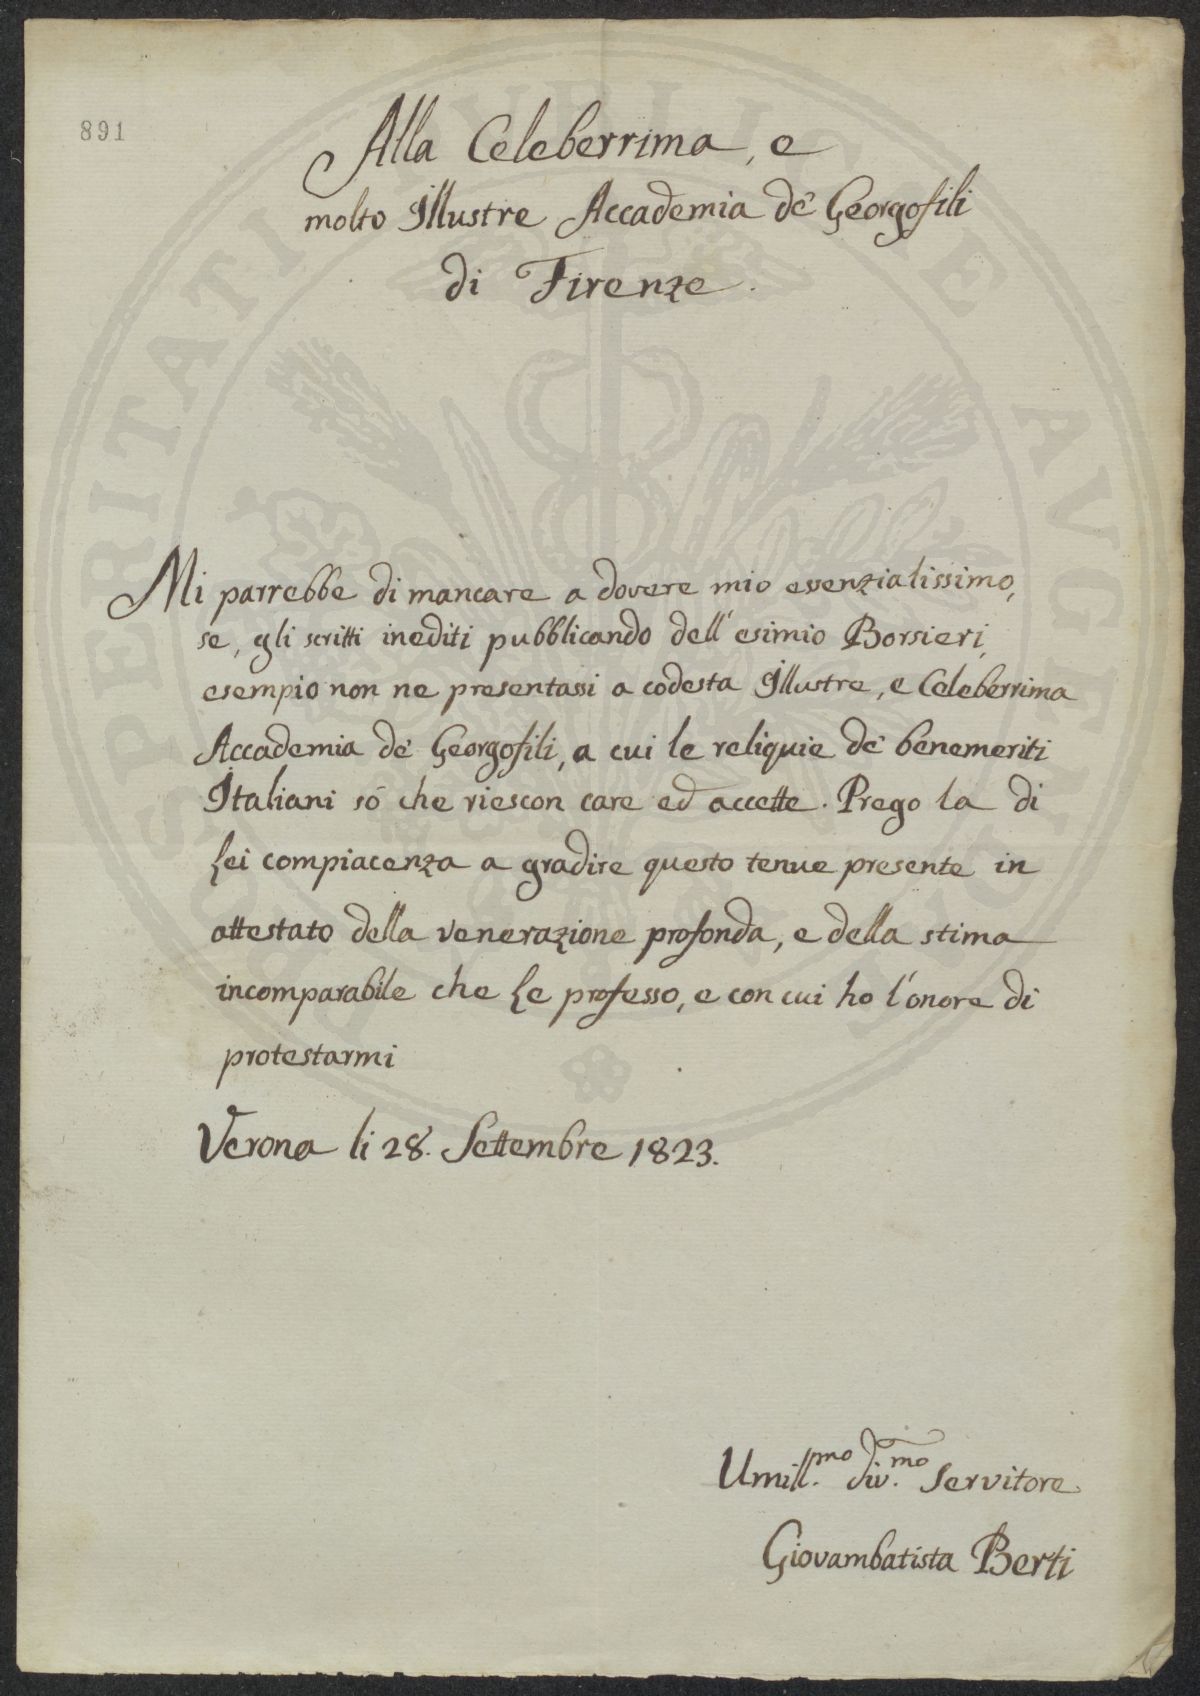 891
Alla Celeberrima, e
molto Illustre Accademia de' Georgofili
di Firenze.
Mi parrebbe di mancare a dovere mio essenzialissimo,
se, gli scritti inediti pubblicando dell'esimio Borsieri,
esempio non ne presentassi a codesta Illustre, e Celeberrima
Accademia de' Georgofili, a cui le reliquie de' benemeriti
Italiani sò che riescon care ed accette. Prego la di
Lei compiacenza a gradire questo tenue presente in
attestato della venerazione profonda, e della stima
incomparabile che Le professo, e con cui ho l'onore di
protestarmi
Verona li 28. Settembre 1823.
Umill.mo div.mo Servitore
Giovambatista Berti
PROSPERITATI PVBLICAE AVGENDAE